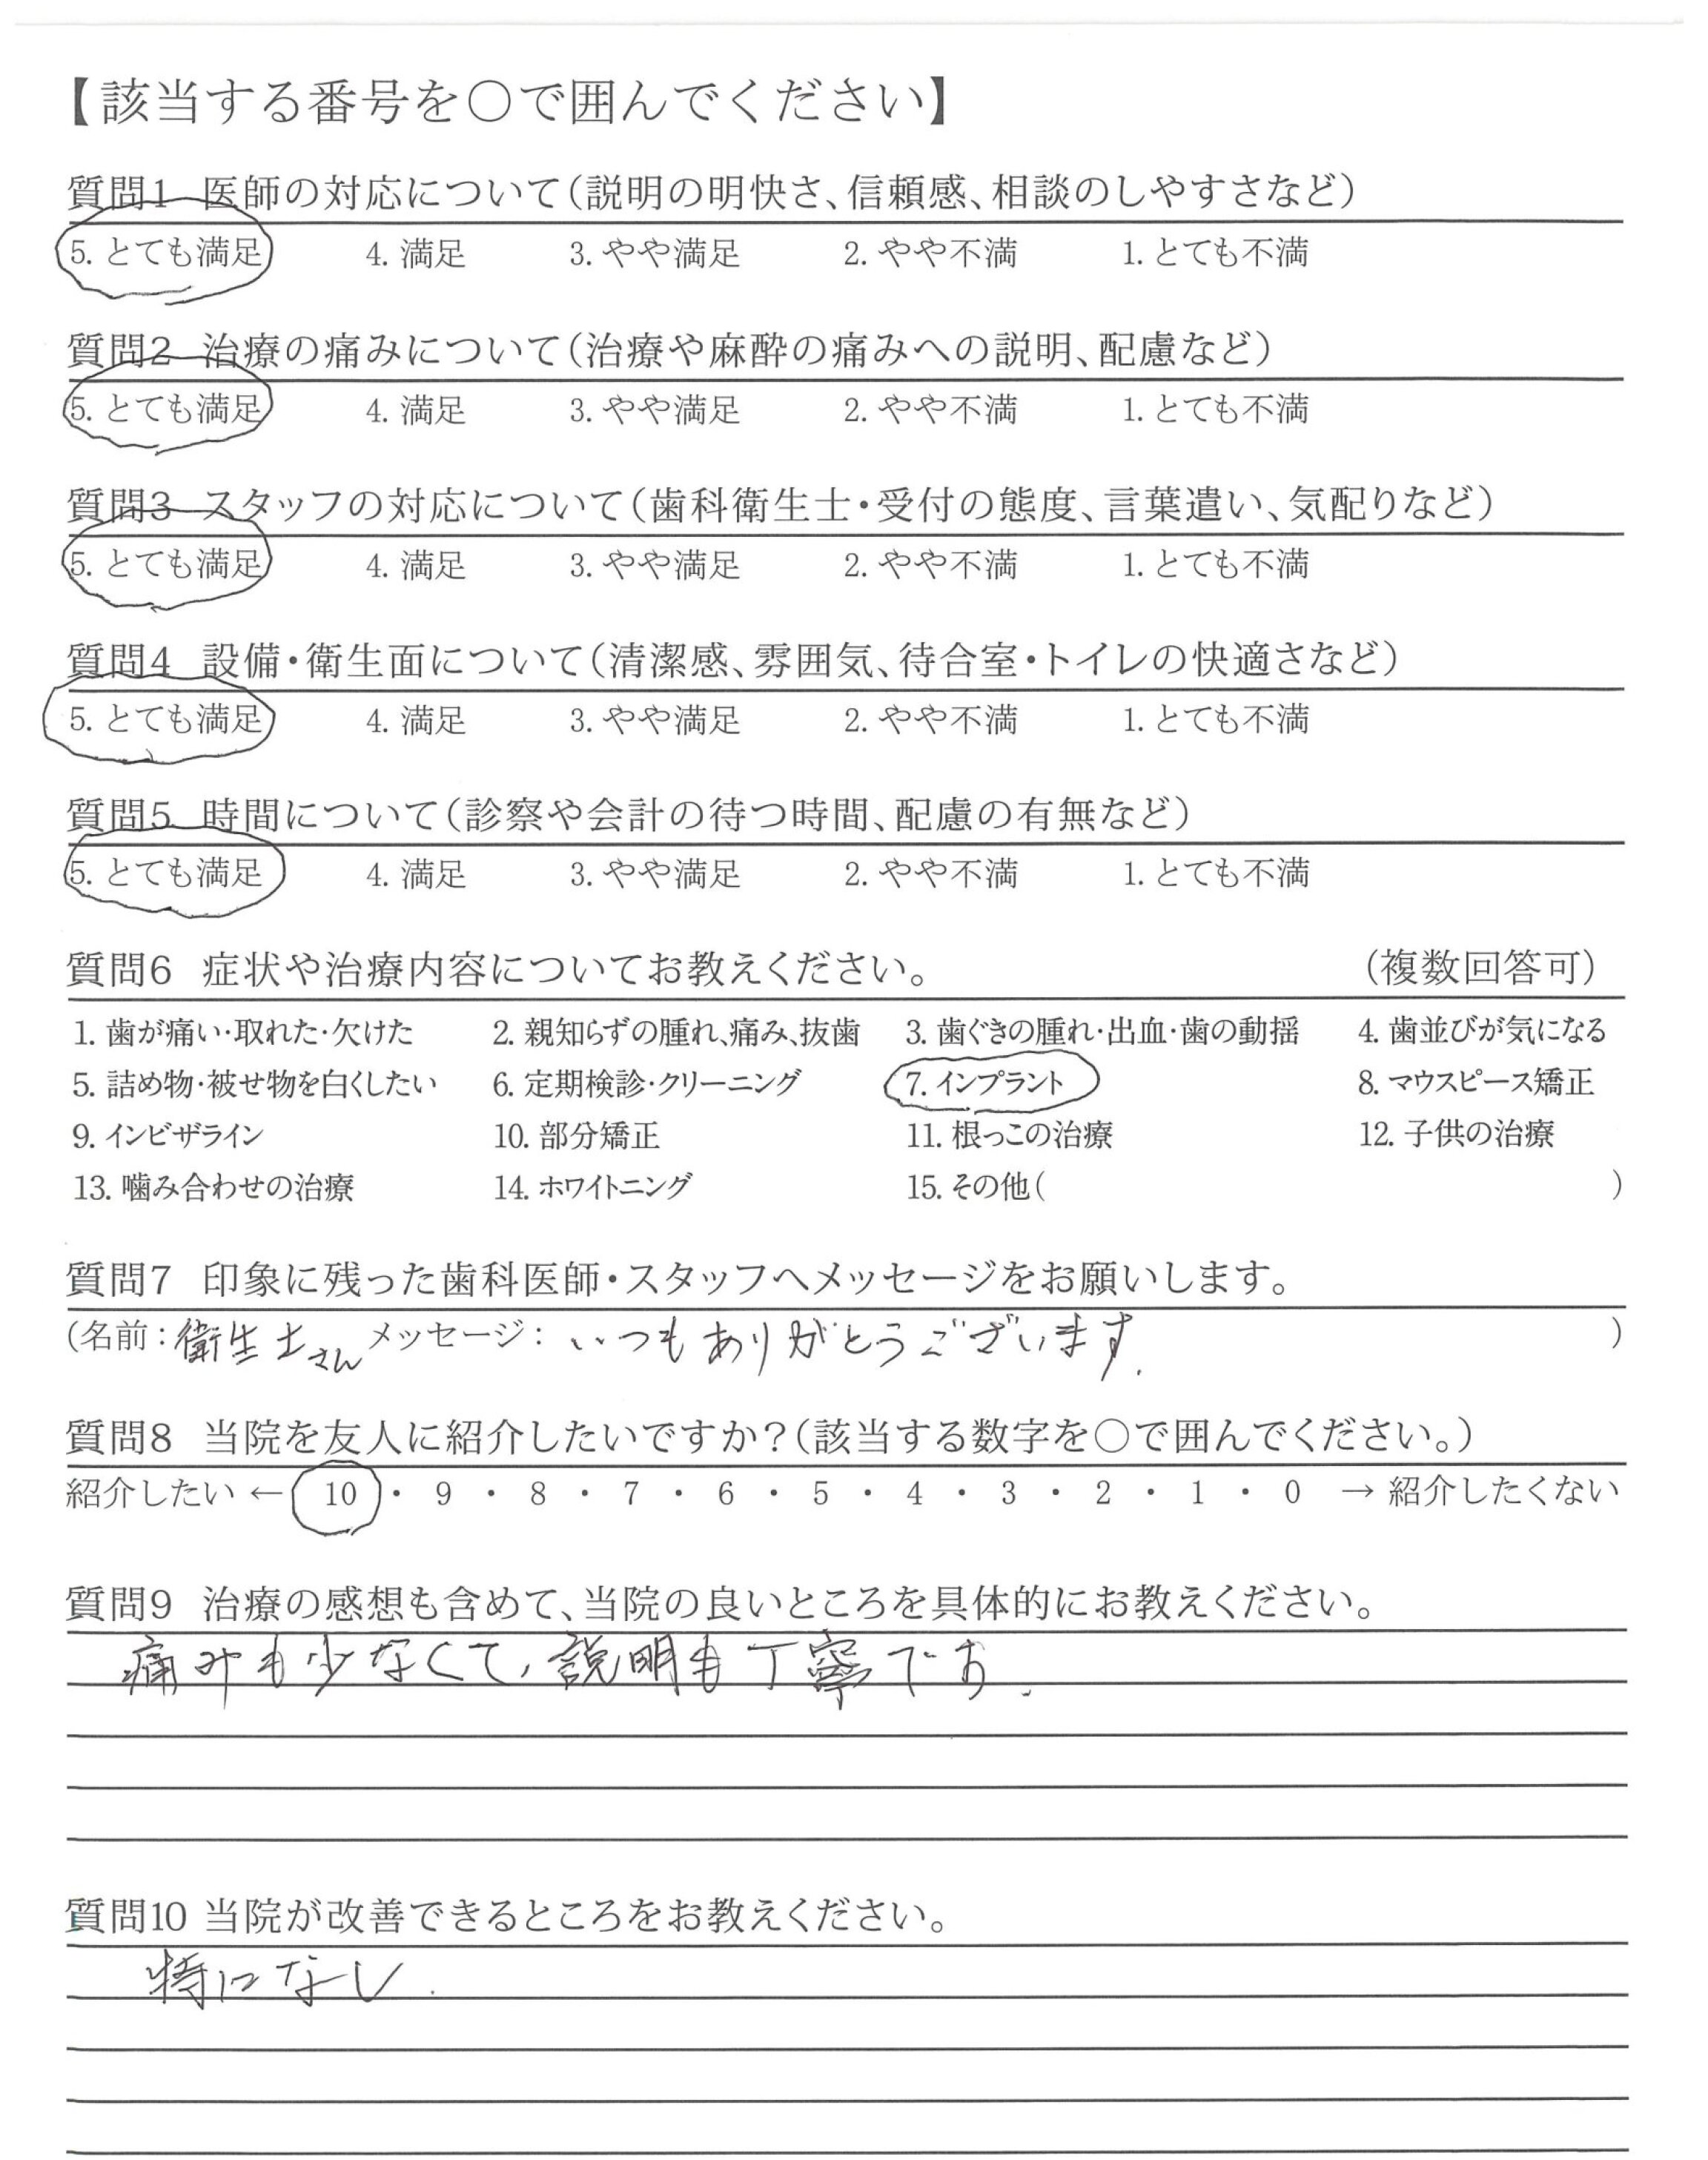 【該当する番号を〇で囲んでください】
質問1 医師の対応について（説明の明快さ、信頼感、相談のしやすさなど）
5. とても満足 4. 満足 3. やや満足 2. やや不満 1. とても不満
質問2 治療の痛みについて（治療や麻酔の痛みへの説明、配慮など）
5. とても満足 4. 満足 3. やや満足 2. やや不満 1. とても不満
質問3 スタッフの対応について（歯科衛生士・受付の態度、言葉遣い、気配りなど）
5. とても満足 4. 満足 3. やや満足 2. やや不満 1. とても不満
質問4 設備・衛生面について（清潔感、雰囲気、待合室・トイレの快適さなど）
5. とても満足 4. 満足 3. やや満足 2. やや不満 1. とても不満
質問5 時間について（診察や会計の待つ時間、配慮の有無など）
5. とても満足 4. 満足 3. やや満足 2. やや不満 1. とても不満
質問6 症状や治療内容についてお教えください。 （複数回答可）
1. 歯が痛い・取れた・欠けた 2. 親知らずの腫れ、痛み、抜歯 3. 歯ぐきの腫れ・出血・歯の動揺 4. 歯並びが気になる
5. 詰め物・被せ物を白くしたい 6. 定期検診・クリーニング 7. インプラント 8. マウスピース矯正
9. インビザライン 10. 部分矯正 11. 根っこの治療 12. 子供の治療
13. 噛み合わせの治療 14. ホワイトニング 15. その他（ ）
質問7 印象に残った歯科医師・スタッフへメッセージをお願いします。
（名前：衛生士さん メッセージ：いつもありがとうございます. ）
質問8 当院を友人に紹介したいですか？（該当する数字を〇で囲んでください。）
紹介したい ← 10 ・ 9 ・ 8 ・ 7 ・ 6 ・ 5 ・ 4 ・ 3 ・ 2 ・ 1 ・ 0 → 紹介したくない
質問9 治療の感想も含めて、当院の良いところを具体的にお教えください。
痛みも少なくて、説明も丁寧です.
質問10 当院が改善できるところをお教えください。
特になし.